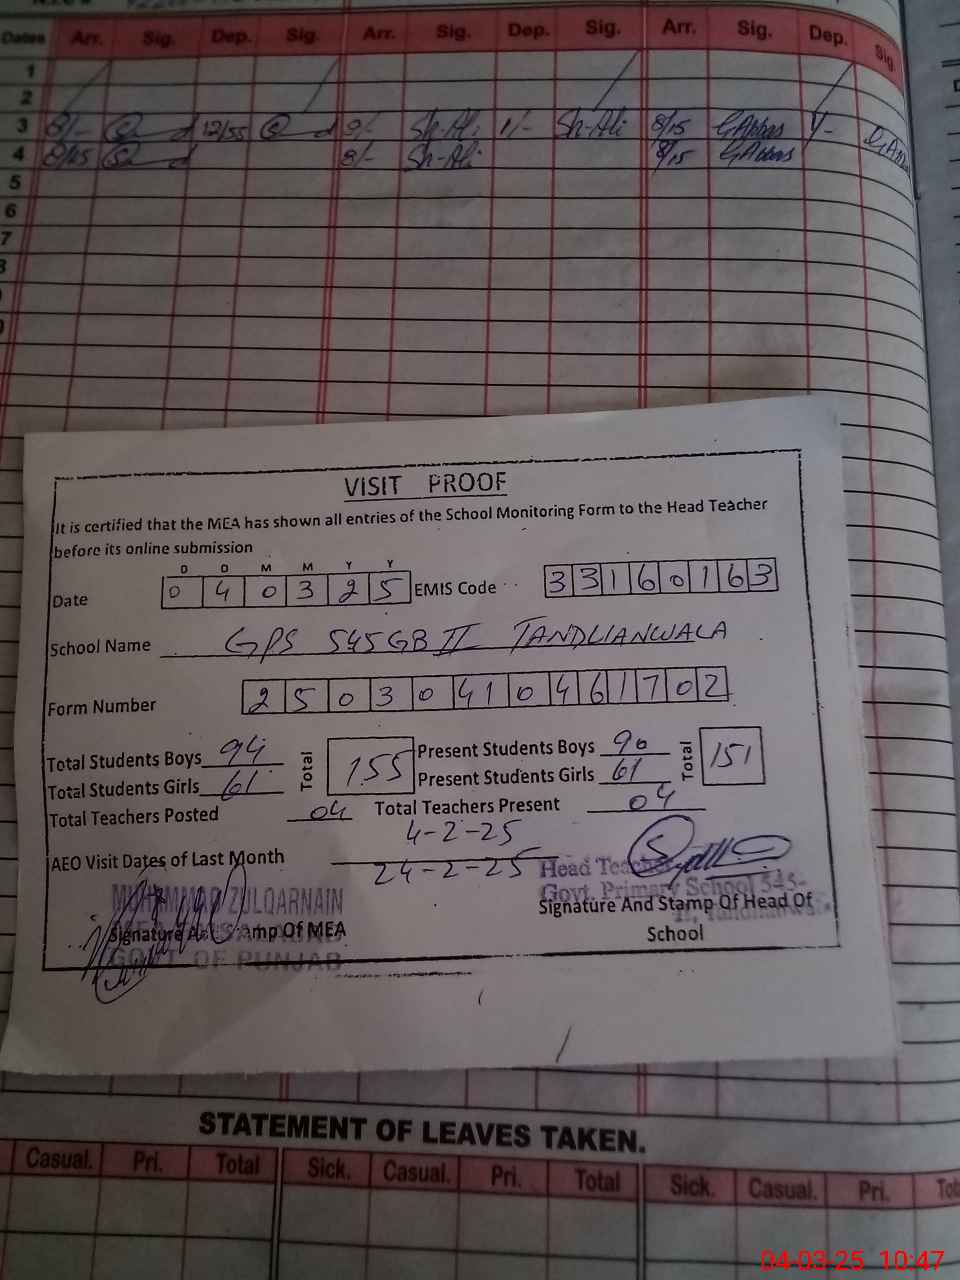 Dates Arr. Sig. Dep. Sig. Arr. Sig. Dep. Sig. Arr. Sig. Dep. Sig.
1
2
3 8/- 12/55 9/- Sh-Ali 1/- Sh-Ali 8/15 GAbbas 1/-
4 8/45 8/- Sh-Ali 8/15 GAbbas
5
6
7
VISIT PROOF
It is certified that the MEA has shown all entries of the School Monitoring Form to the Head Teacher
before its online submission
D D M M Y Y
Date 0 4 0 3 2 5 EMIS Code 3 3 1 6 0 1 6 3
School Name GPS 545 GB II TANDLIANWALA
Form Number 2 5 0 3 0 4 1 0 4 6 1 7 0 2
Total Students Boys 94 Total 155 Present Students Boys 90 Total 151
Total Students Girls 61 Present Students Girls 61
Total Teachers Posted 04 Total Teachers Present 04
4-2-25
AEO Visit Dates of Last Month
24-2-25 Head Teacher
MUHAMMAD ZULQARNAIN Govt. Primary School 545-
Signature And Stamp Of Head Of
Signature And Stamp Of MEA
School
GOVT OF PUNJAB
STATEMENT OF LEAVES TAKEN.
Casual. Pri. Total Sick. Casual. Pri. Total Sick. Casual. Pri. Tot
04-03-25 10:47